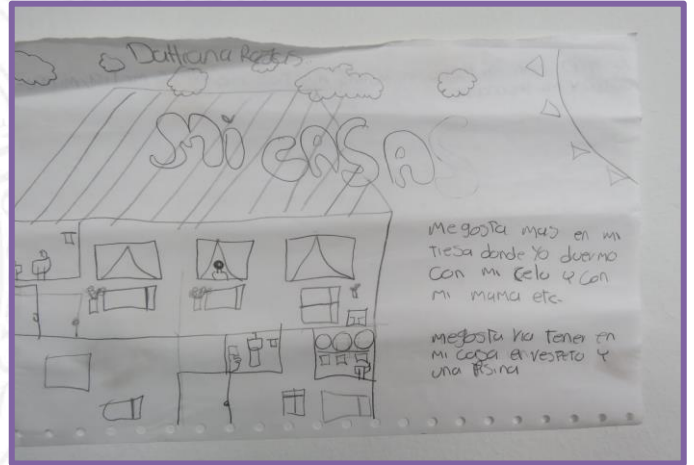 Dattiana Rojas
Mi CASA
Megosta mas en mi
Piesa donde Yo duermo
Con mi Celu y con
Mi mama etc.
megosta ria Tener en
Mi casa el respeto y
una Pisina